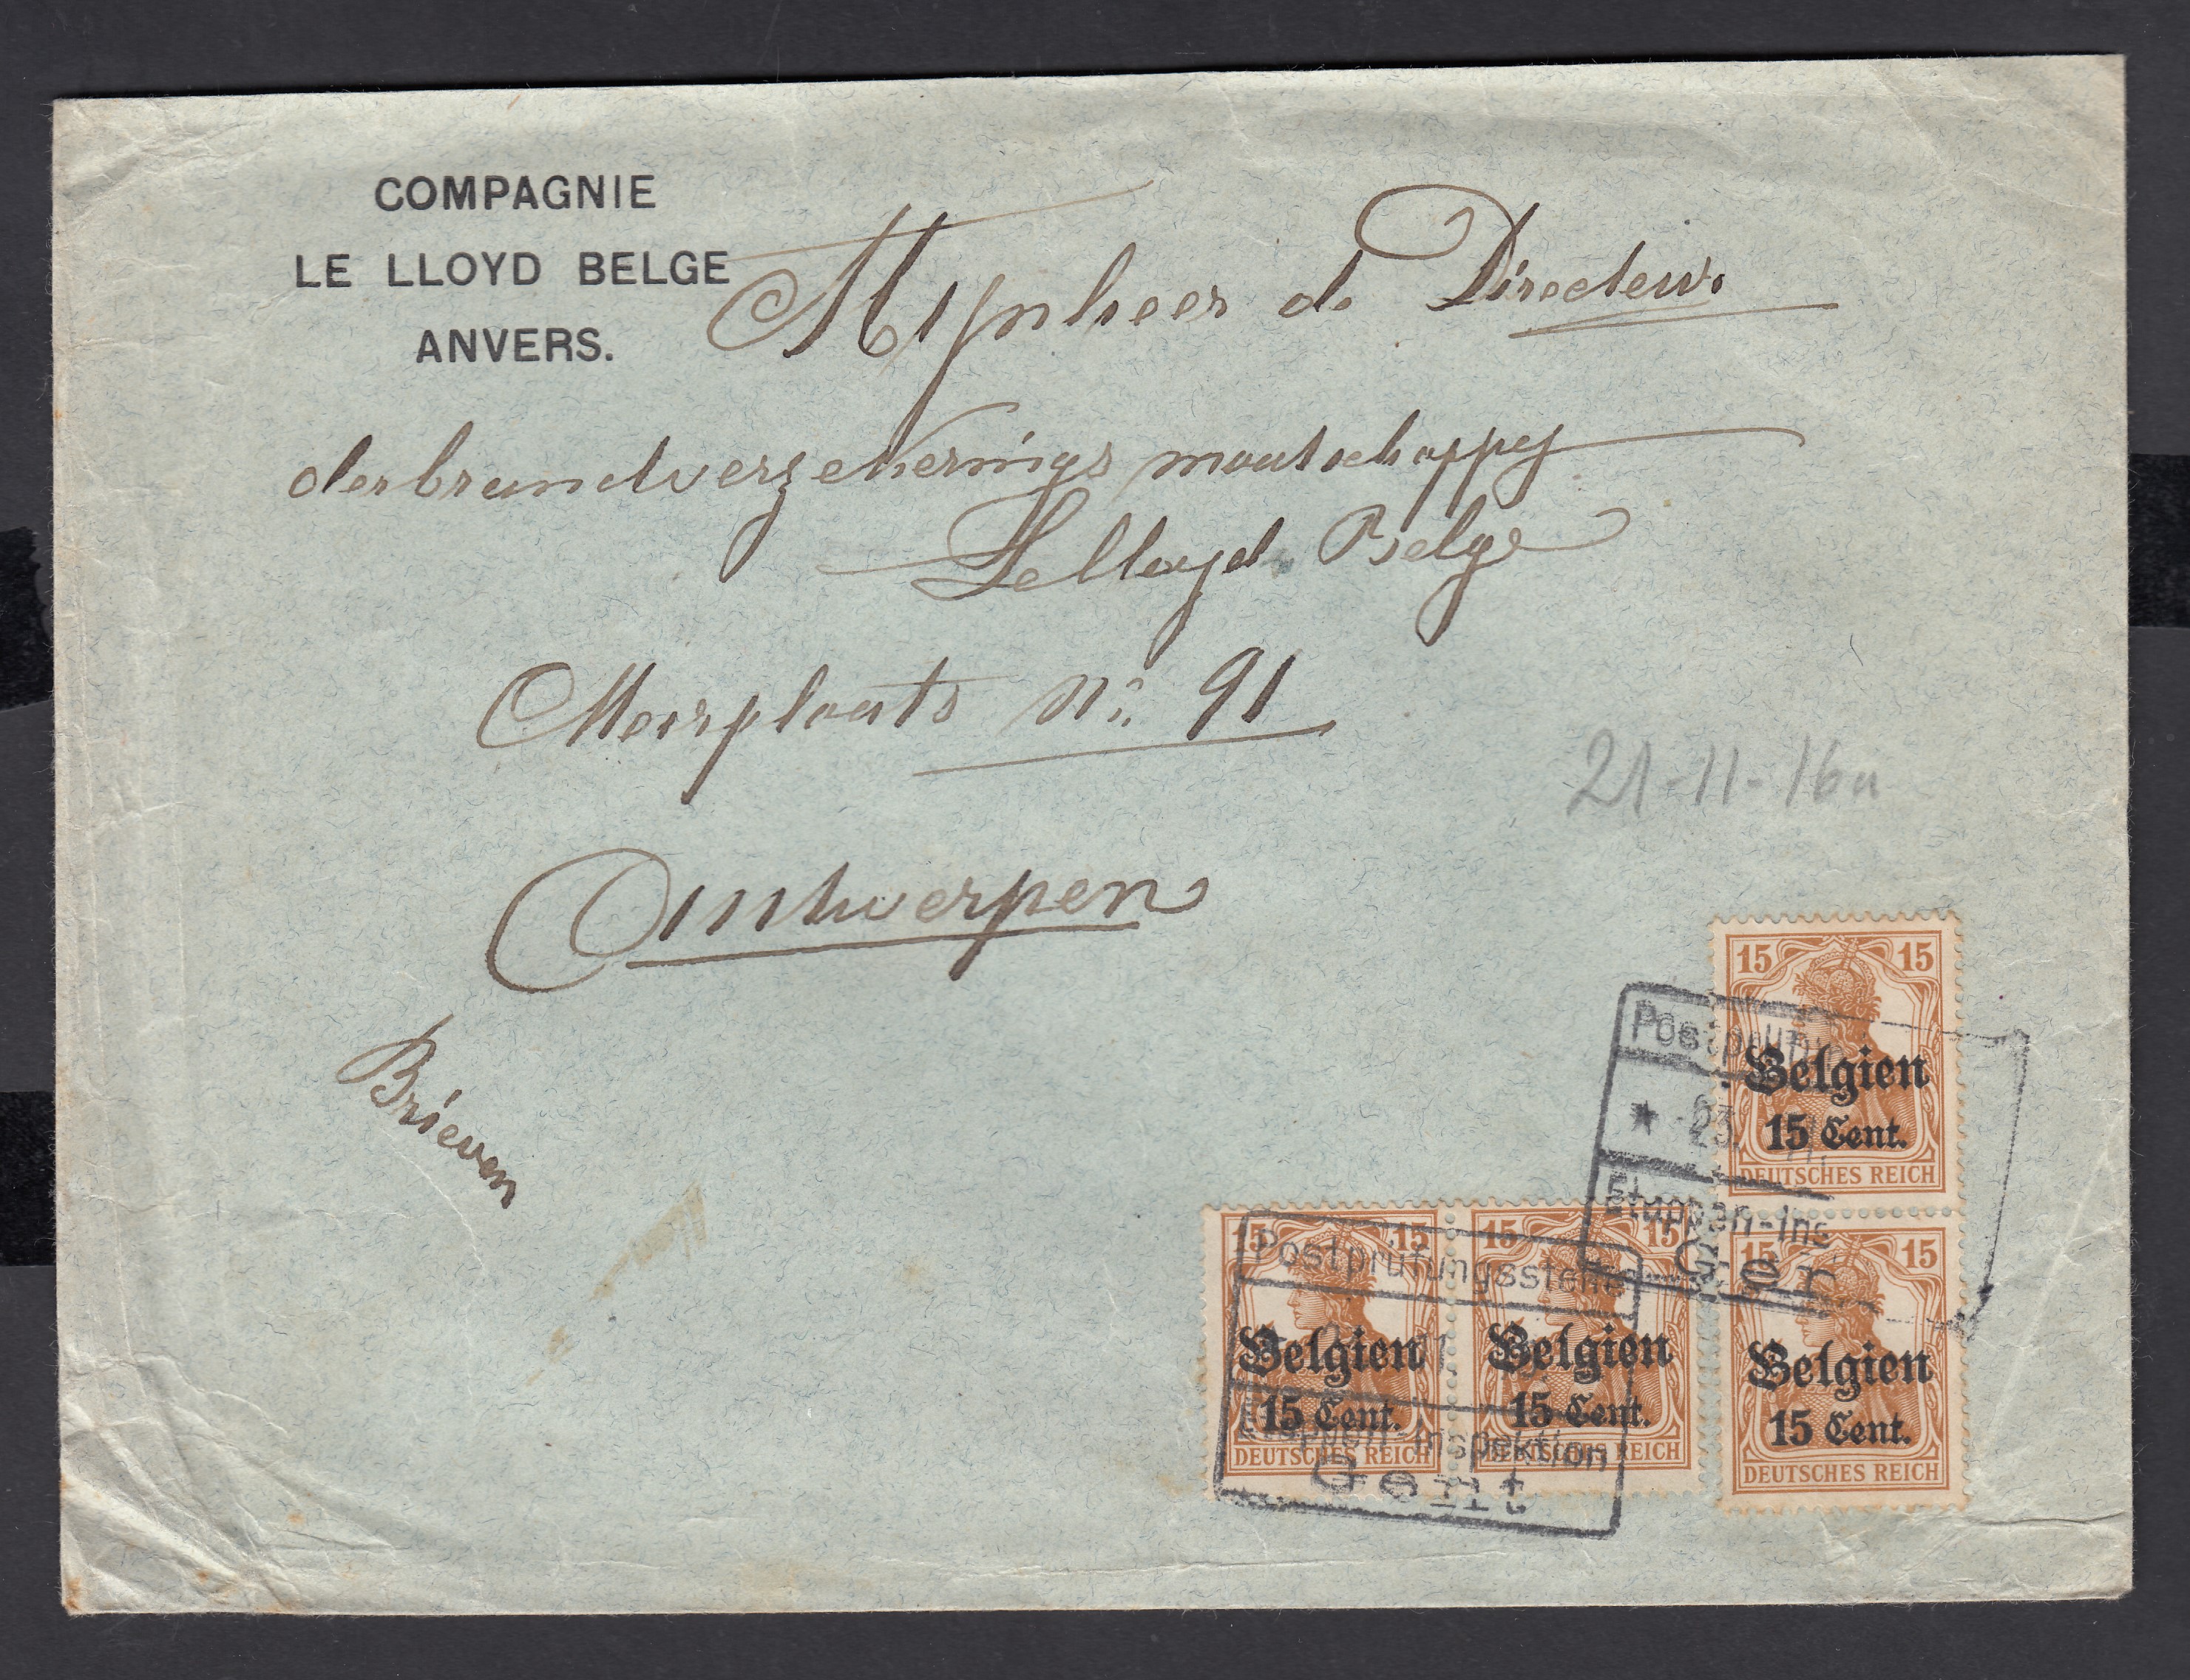 COMPAGNIE
LE LLOYD BELGE
ANVERS.
Mynheer de Directeur
der brandverzekerings maatschappy
Le Lloyd Belge
Meirplaats No. 91
Antwerpen
Brieven
21-11-16
15 15
Belgien
15 Cent.
DEUTSCHES REICH
15 15
Belgien
15 Cent.
DEUTSCHES REICH
15 15
Belgien
15 Cent.
DEUTSCHES REICH
15 15
Belgien
15 Cent.
DEUTSCHES REICH
* 23.
Etappen-Ins
Gen
Postprüfungsstelle
Etappen-Inspektion
Gent